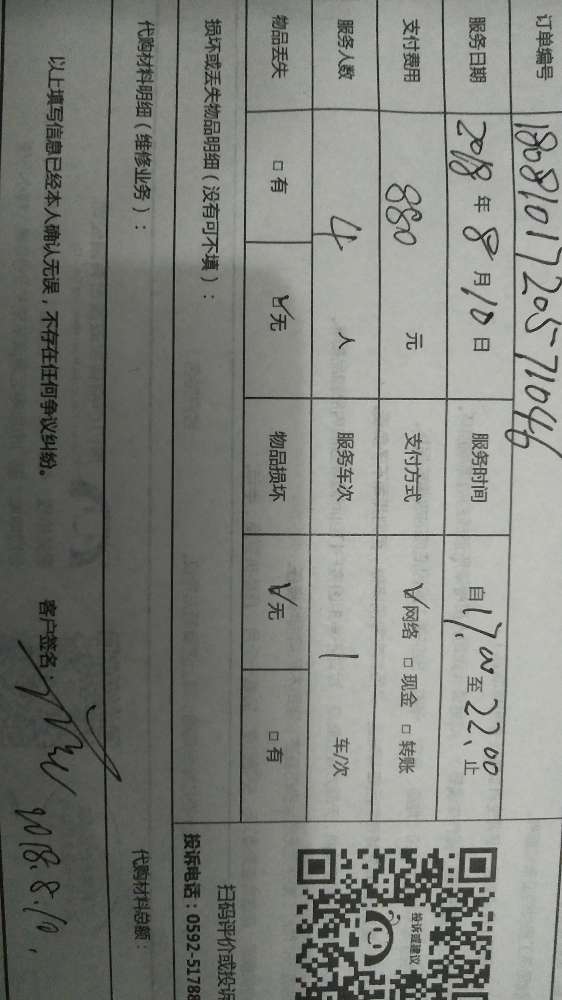 订单编号 1808101720571046
服务日期 2018 年 8 月 10 日 服务时间 自 17:00 至 22:00 止
支付费用 880 元 支付方式 ☑ 网络 □ 现金 □ 转账
服务人数 4 人 服务车次 1 车/次
物品丢失 □ 有 ☑ 无 物品损坏 ☑ 无 □ 有
投诉或建议
扫码评价或投诉
投诉电话：0592-51788
损坏或丢失物品明细（没有可不填）：
代购材料明细（维修业务）： 代购材料总额：
以上填写信息已经本人确认无误，不存在任何争议纠纷。 客户签名： 2018.8.10.